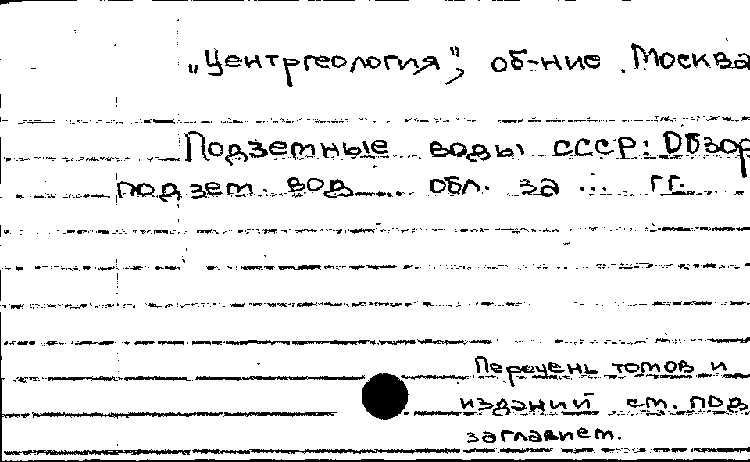 „Центргеология", об-ние. Москва
Подземные воды СССР: Обзор
подзем. вод ... обл. за ... гг.
Перечень томов и
изданий см. под
заглавием.